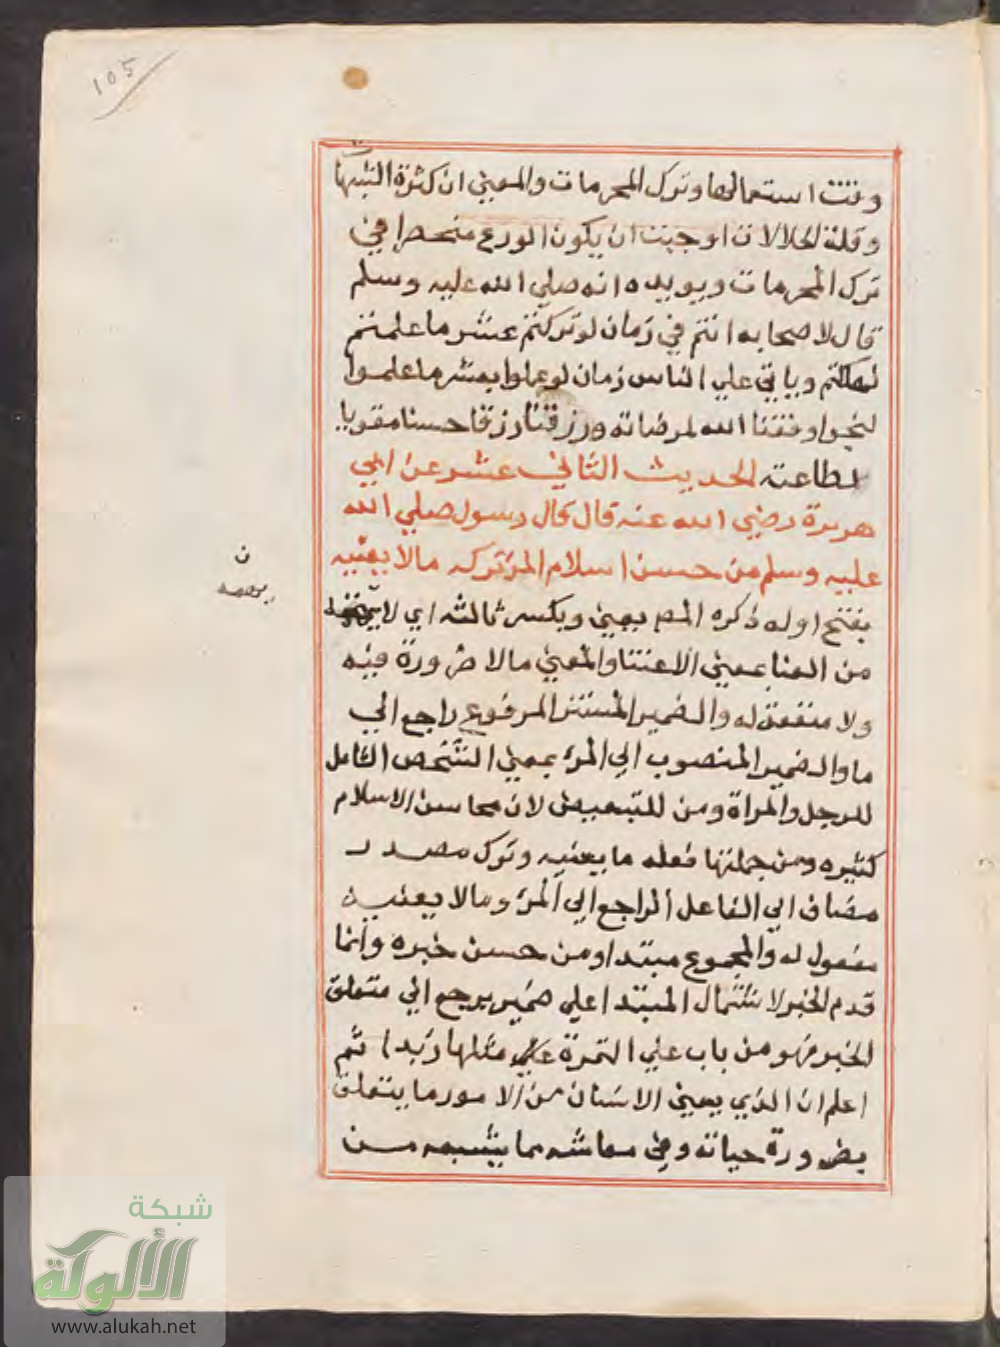 105
وقت استعمالها وترك المحرمات والمعني ان كثرة الشبهات
وقلة الحلالات اوجبت ان يكون الورع منحصرا في
ترك المحرمات ويويده انه صلي الله عليه وسلم
قال لاصحابه انتم في زمان لو تركتم عشر ما علمتم
لهلكتم وياتي علي الناس زمان لو عملوا بعشر ما علموا
لنجوا وفقنا الله لمرضاته ورزقنا رزقا حسنا مقويا
لطاعته الحديث الثاني عشر عن ابي
هريرة رضي الله عنه قال قال رسول صلي الله
عليه وسلم من حسن اسلام المرئ تركه مالا يعنيه
بفتح اوله ذكره المص يعني وبكسر ثالثه اي لا
من العنا بمعني الاعتنا والمعني مالا ضرورة فيه
ولا منفعة له والضمير المستتر المرفوع راجع الي
ما والضمير المنصوب الي المرئ بمعني الشخص الشامل
للرجل والمراة ومن للتبعيض لان محاسن الاسلام
كثيره ومن جملتها فعله ما يعنيه وترك مصدر
مضاف الي الفاعل الراجع الي المرئ ومالا يعنيه
مفعول له والمجموع مبتدا ومن حسن خبره وانما
قدم الخبر لاشتمال المبتدا علي ضمير يرجع الي متعلق
الخبر فهو من باب علي التمرة مثلها زبدا ثم
اعلم ان الذي يعني الانسان من الامور ما يتعلق
بضرورة حياته وفي معاشه مما يشبعه من
ن
شبكة
الألوكة
www.alukah.net